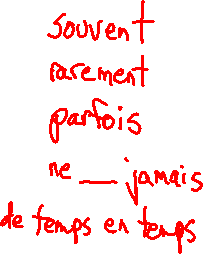 souvent
rarement
parfois
ne __ jamais
de temps en temps